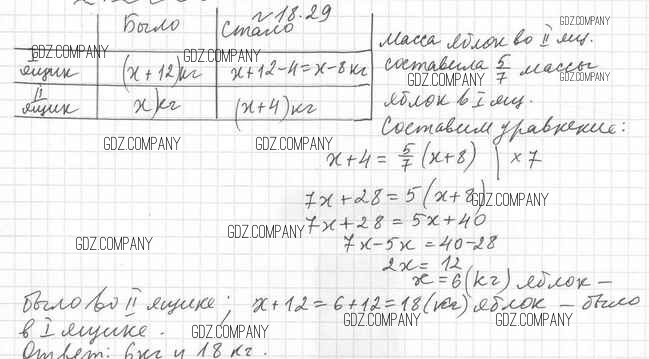 №18.29
Было Стало
I ящик (x+12)кг x+12-4=x-8кг
II ящик x)кг (x+4)кг
масса яблок во II ящ.
составила 5/7 массы
яблок в I ящ.
Составим уравнение:
x+4 = 5/7 (x+8) | ×7
7x+28 = 5(x+8)
7x+28 = 5x+40
7x-5x = 40-28
2x = 12
x=6(кг) яблок –
было во II ящике; x+12=6+12=18(кг) яблок – было
в I ящике.
Ответ: 6кг и 18кг.
GDZ.COMPANY
GDZ.COMPANY
GDZ.COMPANY
GDZ.COMPANY
GDZ.COMPANY
GDZ.COMPANY
GDZ.COMPANY
GDZ.COMPANY
GDZ.COMPANY
GDZ.COMPANY
GDZ.COMPANY
GDZ.COMPANY